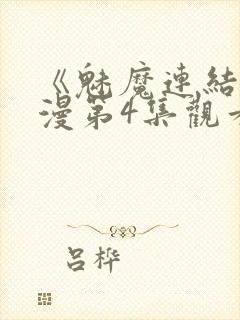 《魅魔連結
漫第4集觀
吕桦